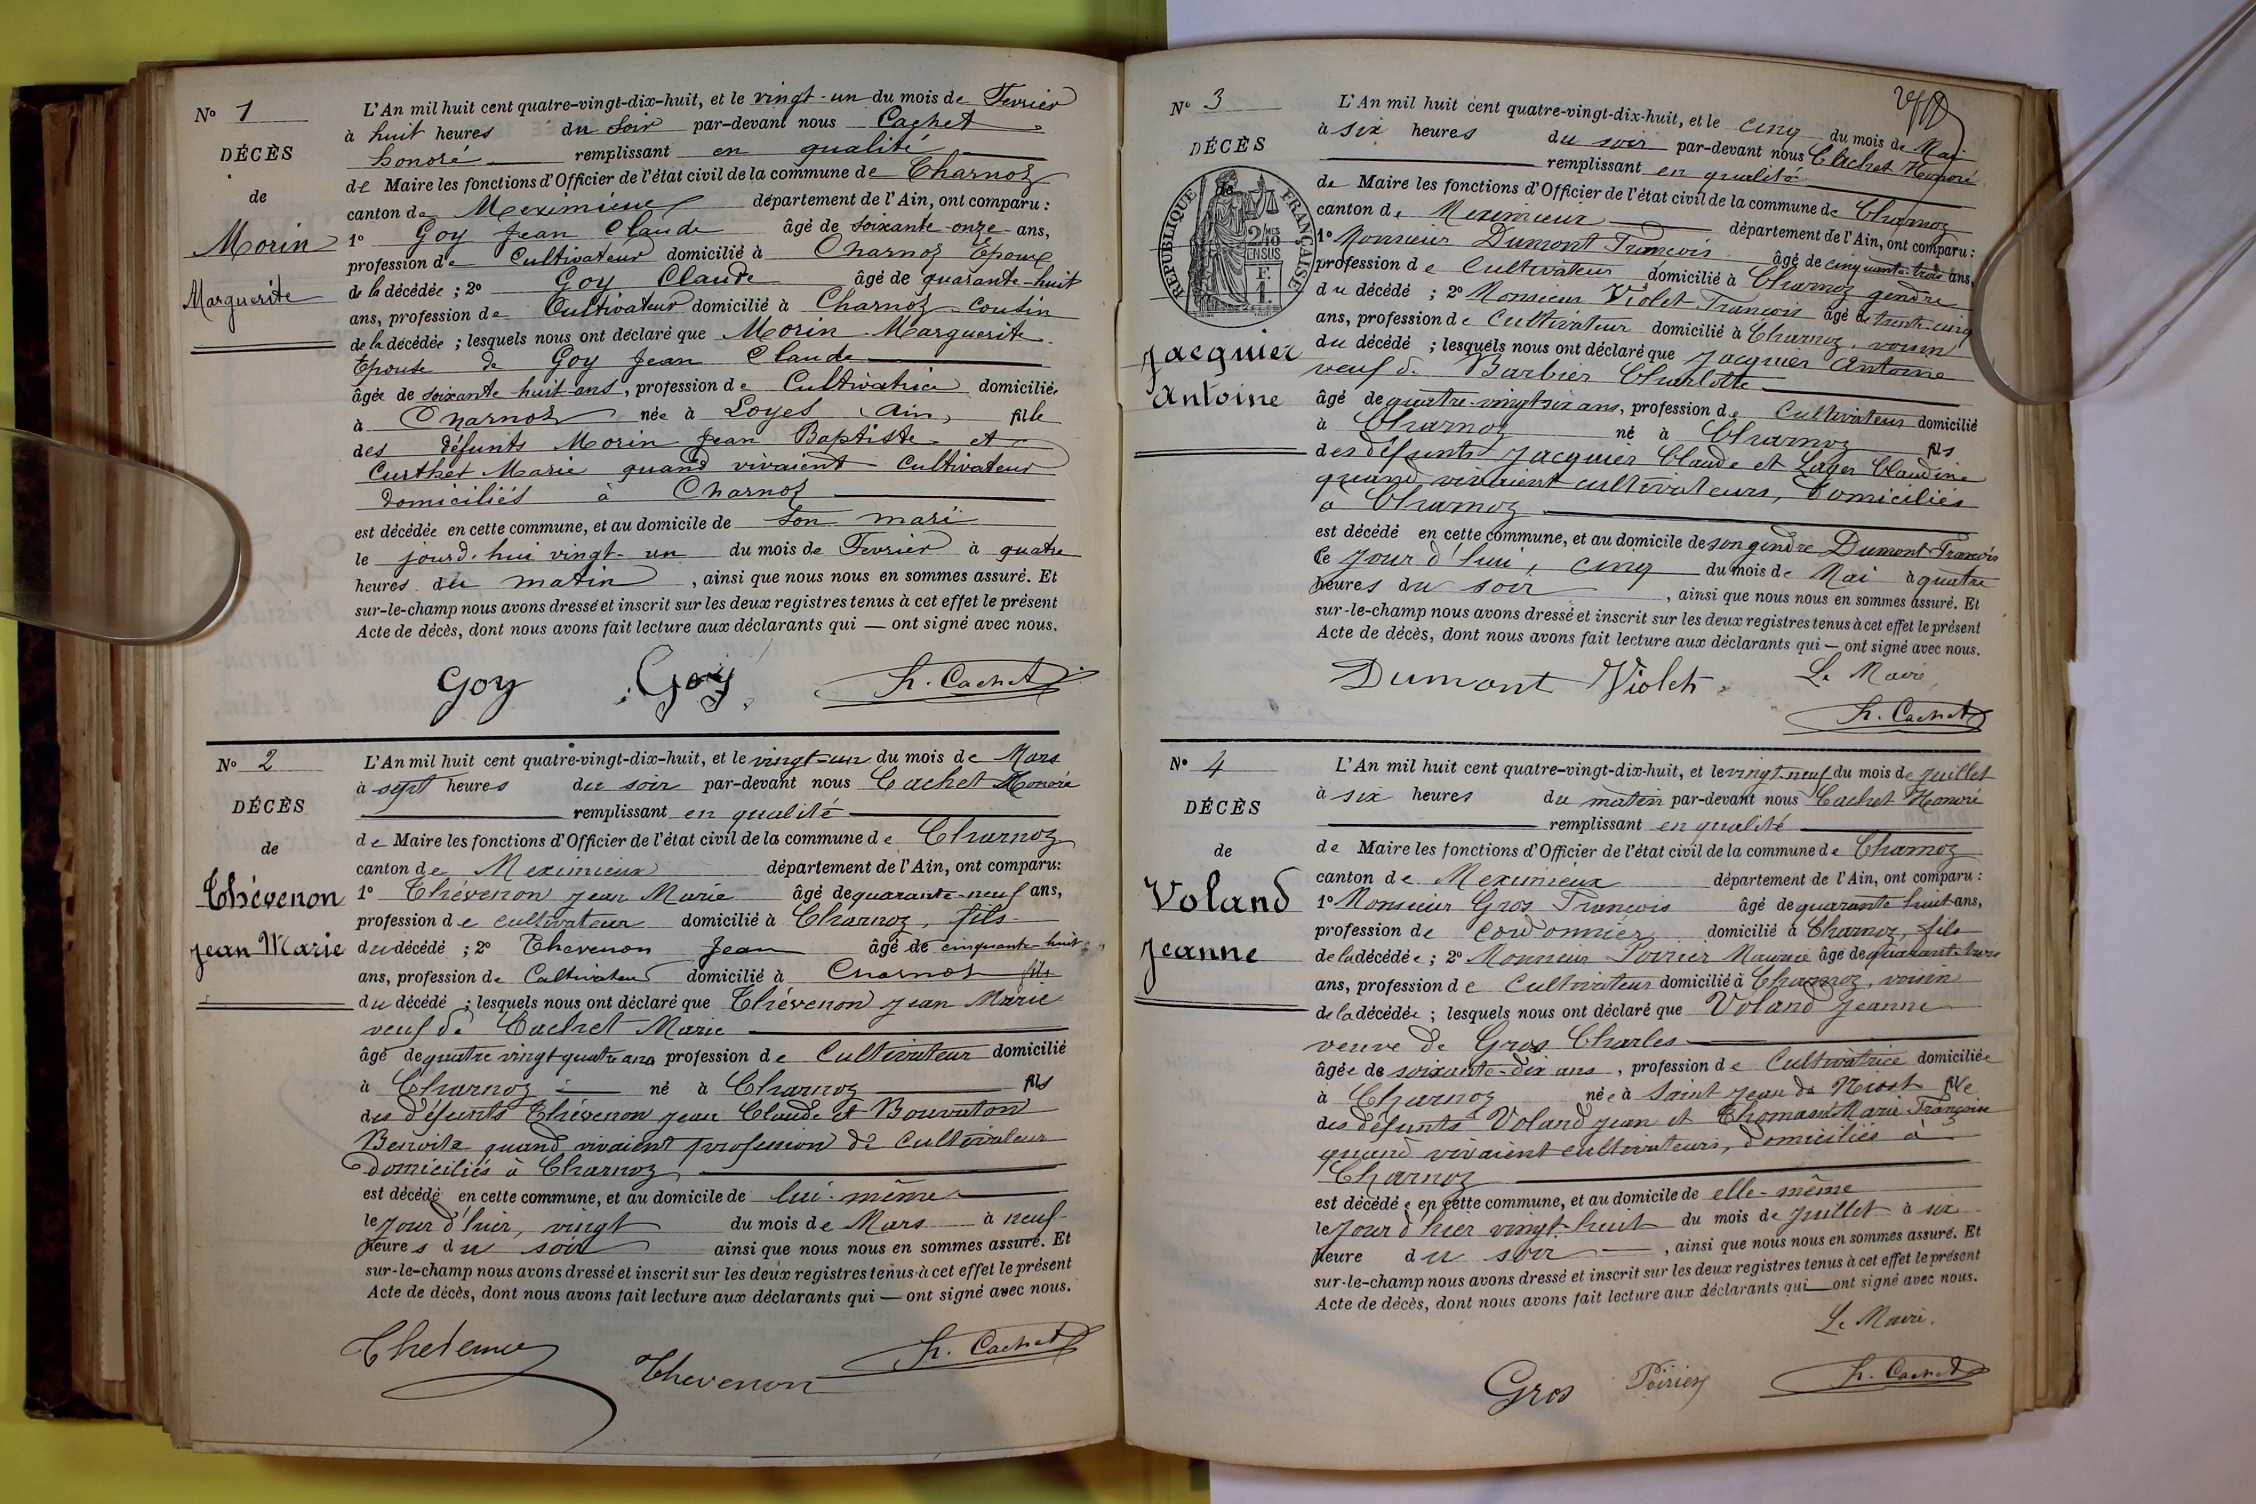 N° 1
DÉCÈS
de
Morin
Marguerite
L'An mil huit cent quatre-vingt-dix-huit, et le vingt-un du mois de Fevrier
à huit heures du soir par-devant nous Cachet
honoré remplissant en qualité
de Maire les fonctions d'Officier de l'état civil de la commune de Charnoz
canton de Meximieux département de l'Ain, ont comparu :
1° Goy Jean Claude âgé de soixante-onze ans,
profession de Cultivateur domicilié à Charnoz Epoux
de la décédée ; 2° Goy Claude âgé de quarante-huit
ans, profession de Cultivateur domicilié à Charnoz cousin
de la décédée ; lesquels nous ont déclaré que Morin Marguerite
Epouse de Goy Jean Claude
âgée de soixante huit ans, profession de Cultivatrice domiciliée
à Charnoz née à Loyes (Ain) fille
des défunts Morin Jean Baptiste et
Curthet Marie quand vivaient Cultivateur
domiciliés à Charnoz
est décédée en cette commune, et au domicile de son mari
le jourd'hui vingt-un du mois de Fevrier à quatre
heures du matin, ainsi que nous nous en sommes assuré. Et
sur-le-champ nous avons dressé et inscrit sur les deux registres tenus à cet effet le présent
Acte de décès, dont nous avons fait lecture aux déclarants qui — ont signé avec nous.
Goy Goy h. Cachet
N° 2
DÉCÈS
de
Thévenon
Jean Marie
L'An mil huit cent quatre-vingt-dix-huit, et le vingt-un du mois de Mars
à sept heures du soir par-devant nous Cachet Honoré
remplissant en qualité
de Maire les fonctions d'Officier de l'état civil de la commune de Charnoz
canton de Meximieux département de l'Ain, ont comparu :
1° Thévenon Jean Marie âgé de quarante-neuf ans,
profession de cultivateur domicilié à Charnoz, fils
du décédé ; 2° Thevenon Jean âgé de cinquante-huit
ans, profession de Cultivateur domicilié à Charnoz fils
du décédé ; lesquels nous ont déclaré que Thévenon Jean Marie
veuf de Cachet Marie
âgé de quatre vingt quatre ans profession de Cultivateur domicilié
à Charnoz né à Charnoz fils
des défunts Thévenon Jean Claude et Bouvaton
Benoite quand vivaient profession de Cultivateur
domiciliés à Charnoz
est décédé en cette commune, et au domicile de lui-même
le jour d'hier, vingt du mois de Mars à neuf
heures du soir ainsi que nous nous en sommes assuré. Et
sur-le-champ nous avons dressé et inscrit sur les deux registres tenus à cet effet le présent
Acte de décès, dont nous avons fait lecture aux déclarants qui — ont signé avec nous.
Thevenon h. Cachet
N° 3
DÉCÈS
de
RÉPUBLIQUE FRANÇAISE
Jacquier
Antoine
L'An mil huit cent quatre-vingt-dix-huit, et le cinq du mois de Mai
à six heures du soir par-devant nous Cachet Honoré
remplissant en qualité
de Maire les fonctions d'Officier de l'état civil de la commune de Charnoz
canton de Meximieux département de l'Ain, ont comparu :
1° Monsieur Dumont François âgé de cinquante-trois ans,
profession de Cultivateur domicilié à Charnoz gendre
du décédé ; 2° Monsieur Violet François âgé de trente-cinq
ans, profession de Cultivateur domicilié à Charnoz, voisin
du décédé ; lesquels nous ont déclaré que Jacquier Antoine
veuf de Barbier Charlotte
âgé de quatre-vingt six ans, profession de Cultivateur domicilié
à Charnoz né à Charnoz fils
des défunts Jacquier Claude et Layer Claudine
quand vivaient cultivateurs, domiciliés
à Charnoz
est décédé en cette commune, et au domicile de son gendre Dumont François
le jour d'hui, cinq du mois de Mai à quatre
heures du soir, ainsi que nous nous en sommes assuré. Et
sur-le-champ nous avons dressé et inscrit sur les deux registres tenus à cet effet le présent
Acte de décès, dont nous avons fait lecture aux déclarants qui — ont signé avec nous.
Dumont Violet Le Maire
h. Cachet
N° 4
DÉCÈS
de
Voland
Jeanne
L'An mil huit cent quatre-vingt-dix-huit, et le vingt neuf du mois de Juillet
à six heures du matin par-devant nous Cachet Honoré
remplissant en qualité
de Maire les fonctions d'Officier de l'état civil de la commune de Charnoz
canton de Meximieux département de l'Ain, ont comparu :
1° Monsieur Gros François âgé de quarante huit ans,
profession de cordonnier domicilié à Charnoz, fils
de la décédée ; 2° Monsieur Poirier Maurice âgé de quarante-trois
ans, profession de Cultivateur domicilié à Charnoz, voisin
de la décédée ; lesquels nous ont déclaré que Voland Jeanne
veuve de Gros Charles
âgée de soixante-dix ans, profession de Cultivatrice domiciliée
à Charnoz née à Saint Jean de Niost fille
des défunts Voland Jean et Thomasé Marie Françoise
quand vivaient cultivateurs, domiciliés à
Charnoz
est décédée en cette commune, et au domicile de elle-même
le jour d'hier vingt-huit du mois de Juillet à six
heure du soir, ainsi que nous nous en sommes assuré. Et
sur-le-champ nous avons dressé et inscrit sur les deux registres tenus à cet effet le présent
Acte de décès, dont nous avons fait lecture aux déclarants qui — ont signé avec nous.
Le Maire.
Gros Poirier h. Cachet